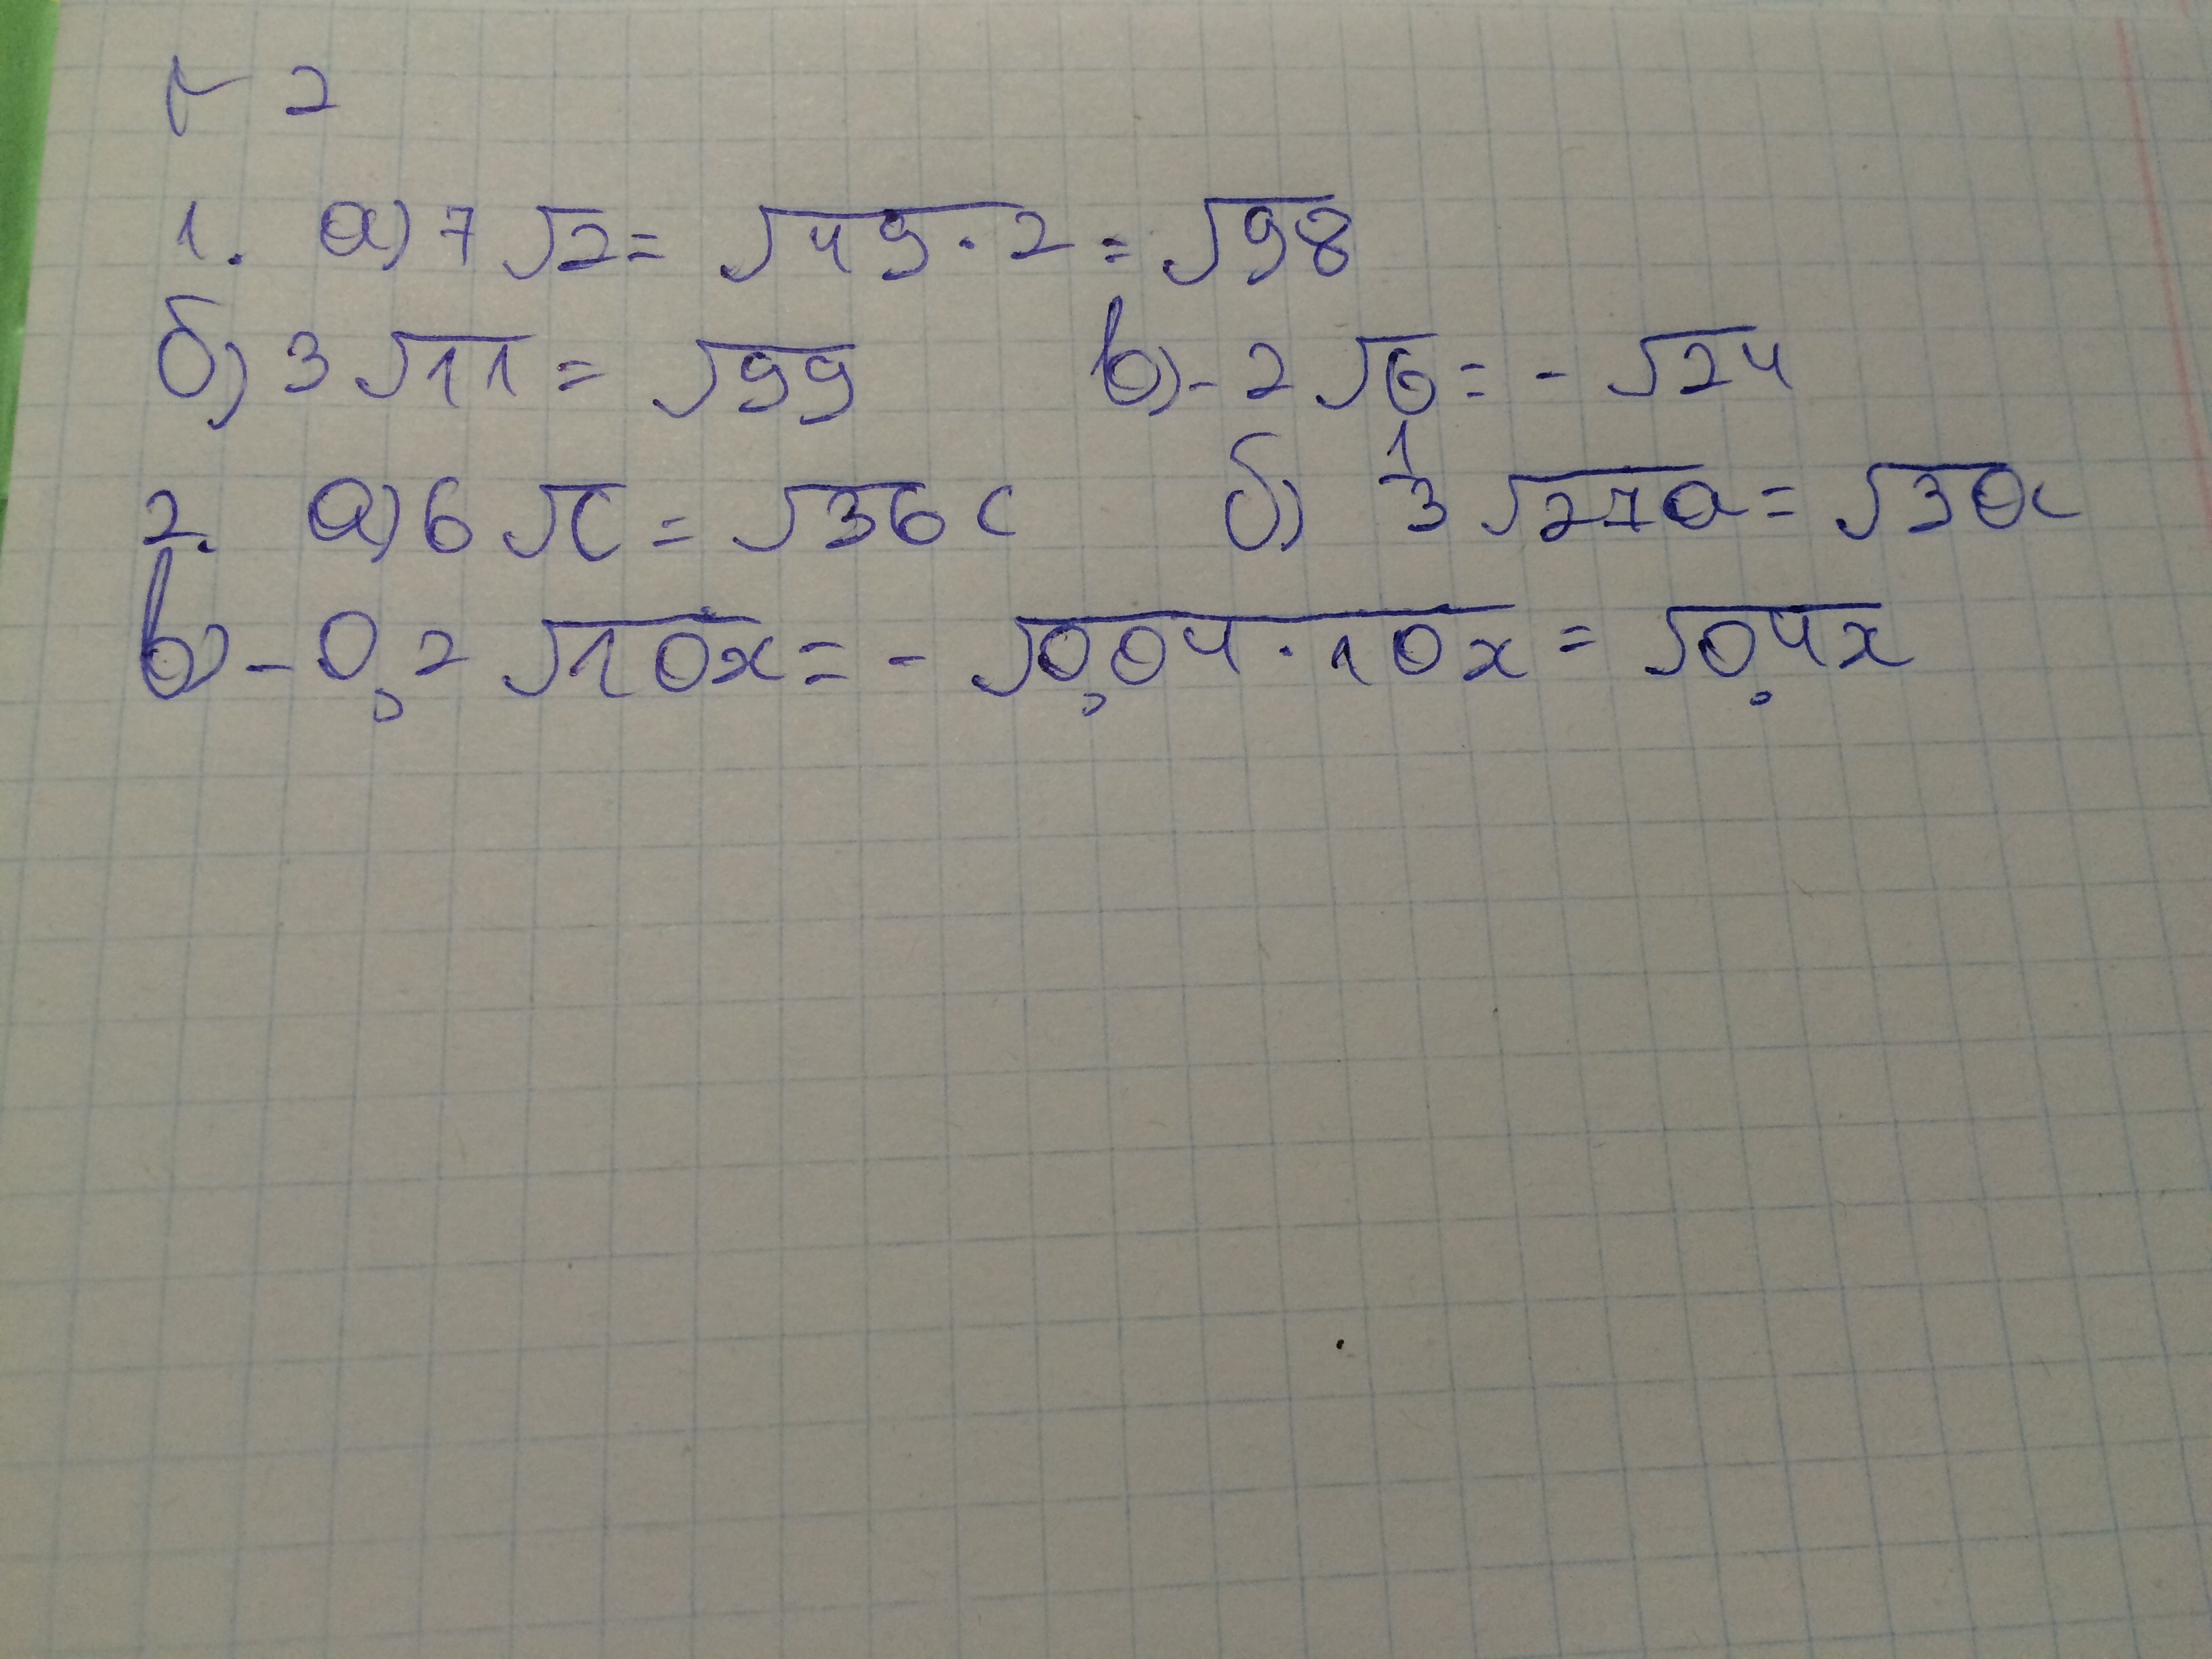 Р 2
1. а) 7 √2 = √49·2 = √98
б) 3 √11 = √99 в) - 2 √6 = - √24
2. а) 6 √c = √36 c б) 1/3 √27a = √3a
в) - 0,2 √10x = - √0,04·10x = √0,4x